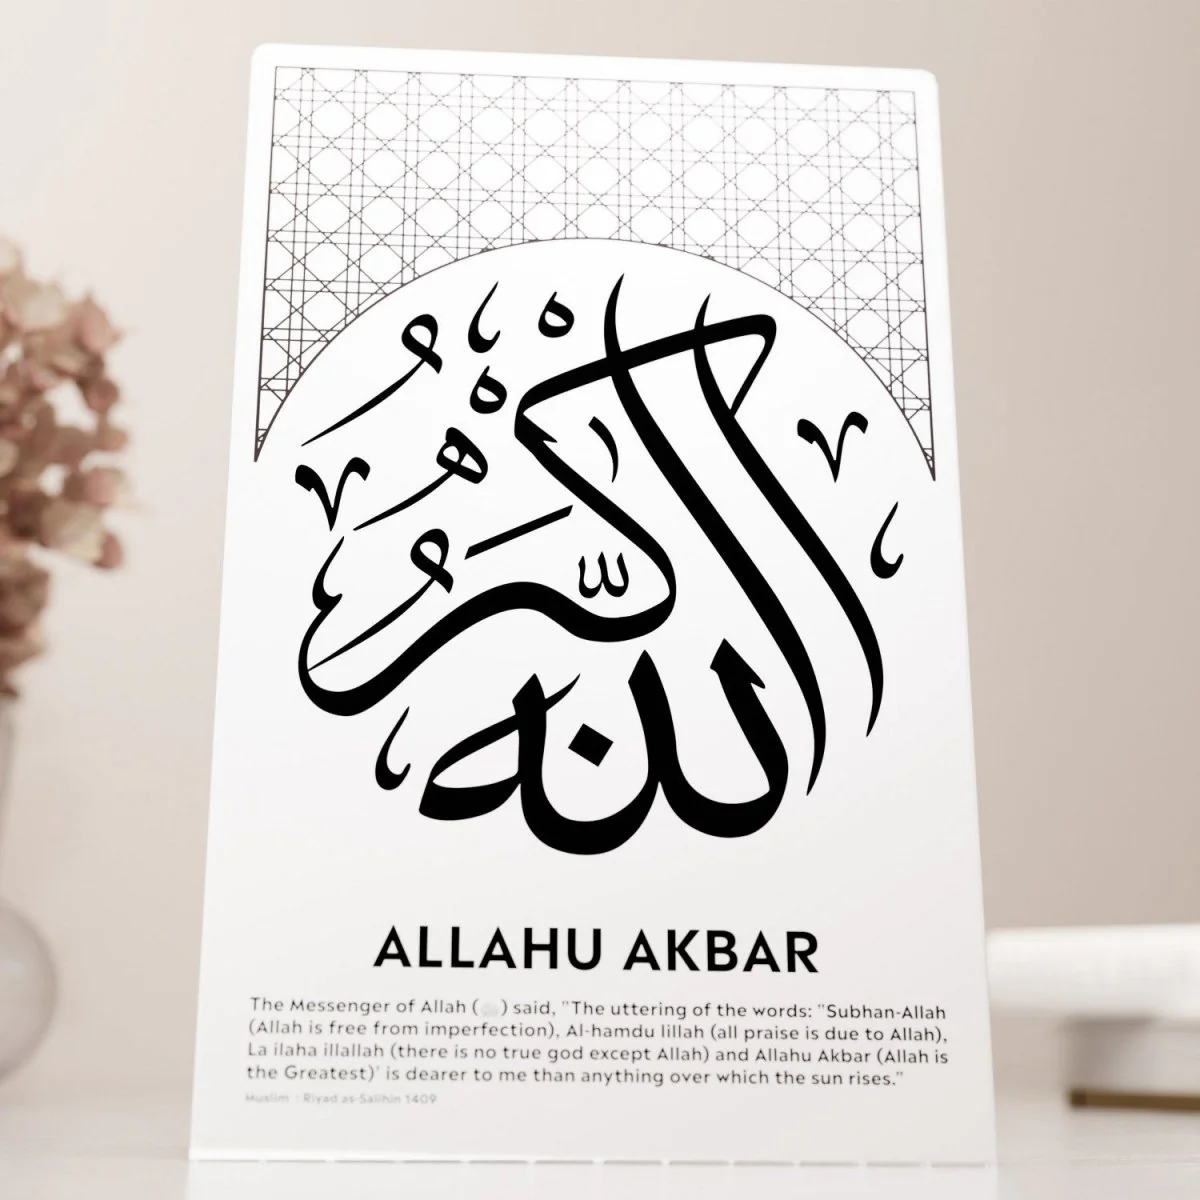 الله أكبر
ALLAHU AKBAR
The Messenger of Allah (ﷺ) said, "The uttering of the words: "Subhan-Allah
(Allah is free from imperfection), Al-hamdu lillah (all praise is due to Allah),
La ilaha illallah (there is no true god except Allah) and Allahu Akbar (Allah is
the Greatest)' is dearer to me than anything over which the sun rises."
Muslim : Riyad as-Salihin 1409